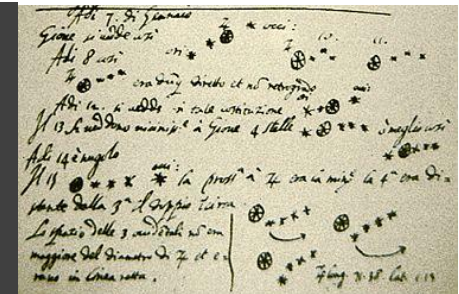 Adi 7. di Gennaio
Gione si vedde così
occi:
Adi 8 così
ori
10. 11.
era dūq diretto et nō retrogrado
Adi 12. si vedde in tale costitutione
Il 13 si veddono à Gioue 4 stelle
ò meglio così
Adi 14 è nugolo
Il 15
occi:
la pross.ᵃ à ♃ era la 4.ᵃ era di-
stante dalla 3.ᵃ il doppio
Lo spatio delle 3 nō era
maggiore del diametro di ♃ et e-
rano in linea retta.
♃ long. 71.38 Lat. 1.13